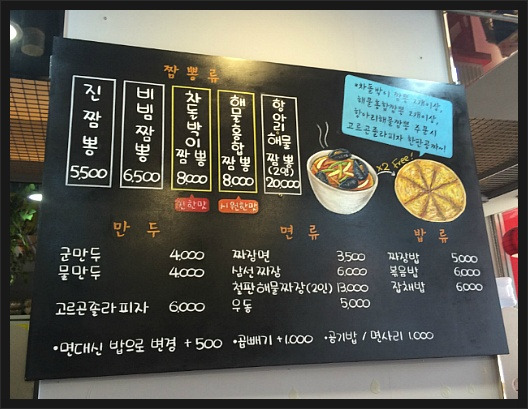 짬뽕류
진짬뽕 5,500
비빔짬뽕 6,500
차돌박이짬뽕 8,000
해물홍합짬뽕 8,000
항아리해물짬뽕(2인) 20,000
진한맛
시원한맛
•차돌박이 짬뽕 2개이상,
해물홍합짬뽕 2개이상,
항아리해물짬뽕 주문시
고르곤졸라피자 한판공짜!!
x2 Free!
만두
군만두 4,000
물만두 4,000
고르곤졸라 피자 6,000
면류
짜장면 3,500
삼선짜장 6,000
철판해물짜장(2인) 13,000
우동 5,000
밥류
짜장밥 5,000
볶음밥 6,000
잡채밥 6,000
•면대신 밥으로 변경 +500 •곱빼기 +1,000 •공기밥 / 면사리 1,000